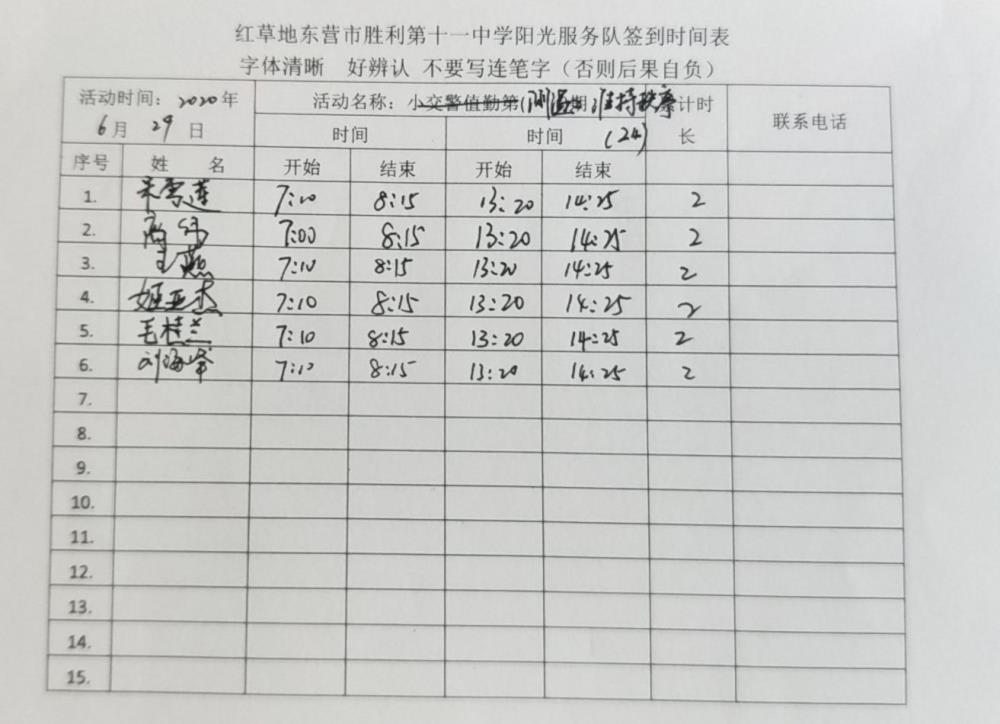 红草地东营市胜利第十一中学阳光服务队签到时间表
字体清晰 好辨认 不要写连笔字（否则后果自负）
活动时间：2020年
6月 29 日
活动名称：小交警值勤第(测温 期 维持秩序 累计时
长
(24)
联系电话
时间 时间
序号 姓 名 开始 结束 开始 结束
1. 7:10 8:15 13:20 14:25 2
2. 7:00 8:15 13:20 14:25 2
3. 王燕 7:10 8:15 13:20 14:25 2
4. 姬亚杰 7:10 8:15 13:20 14:25 2
5. 毛桂兰 7:10 8:15 13:20 14:25 2
6. 刘海峰 7:10 8:15 13:20 14:25 2
7.
8.
9.
10.
11.
12.
13.
14.
15.